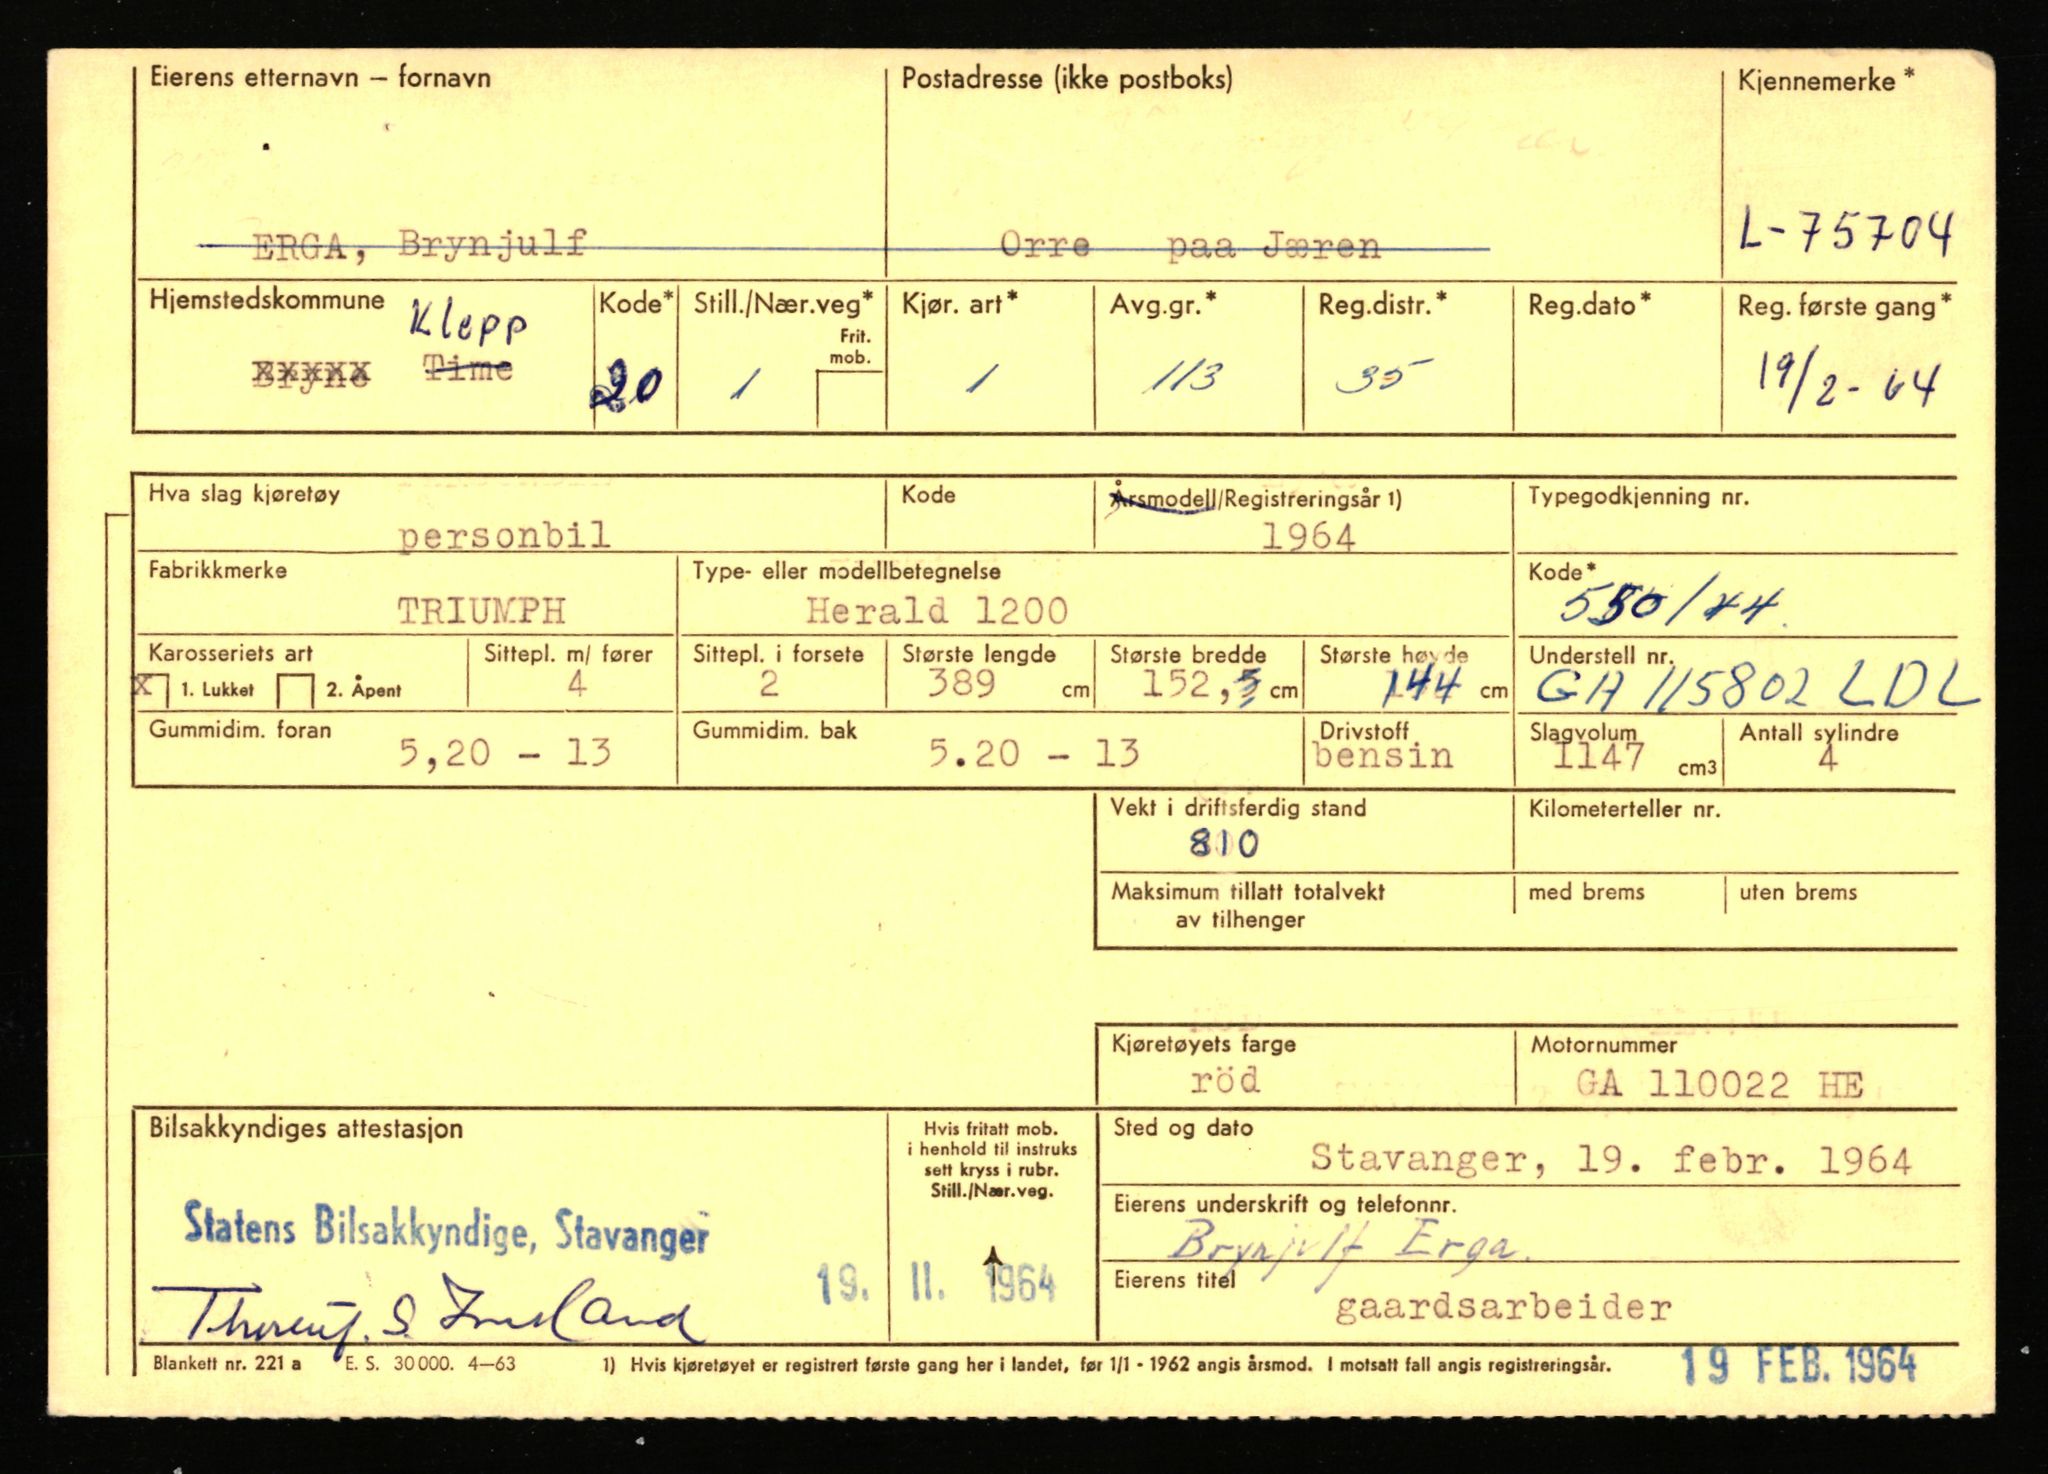 Eierens etternavn – fornavn
Postadresse (ikke postboks)
Kjennemerke*
ERGA, Brynjulf
Orre paa Jæren
L-75704
Hjemstedskommune
Klepp
Bryne Time
Kode*
20
Still./Nær.veg*
Frit. mob.
1
Kjør. art*
1
Avg.gr.*
113
Reg.distr.*
35
Reg.dato*
Reg. første gang*
19/2-64
Hva slag kjøretøy
personbil
Kode
Årsmodell/Registreringsår 1)
1964
Typegodkjenning nr.
Fabrikkmerke
TRIUMPH
Type- eller modellbetegnelse
Herald 1200
Kode*
550/44
Karosseriets art
X 1. Lukket 2. Åpent
Sittepl. m/ fører
4
Sittepl. i forsete
2
Største lengde
389 cm
Største bredde
152,5 cm
Største høyde
144 cm
Understell nr.
GA 115802 LDL
Gummidim. foran
5,20 - 13
Gummidim. bak
5.20 - 13
Drivstoff
bensin
Slagvolum
1147 cm3
Antall sylindre
4
Vekt i driftsferdig stand
810
Kilometerteller nr.
Maksimum tillatt totalvekt
av tilhenger
med brems
uten brems
Kjøretøyets farge
röd
Motornummer
GA 110022 HE
Bilsakkyndiges attestasjon
Hvis fritatt mob.
i henhold til instruks
sett kryss i rubr.
Still./Nær.veg.
Sted og dato
Stavanger, 19. febr. 1964
Statens Bilsakkyndige, Stavanger
19. II. 1964
Eierens underskrift og telefonnr.
Brynjulf Erga.
Eierens titel
gaardsarbeider
Blankett nr. 221 a E. S. 30000. 4—63
1) Hvis kjøretøyet er registrert første gang her i landet, før 1/1 - 1962 angis årsmod. I motsatt fall angis registreringsår.
19 FEB. 1964